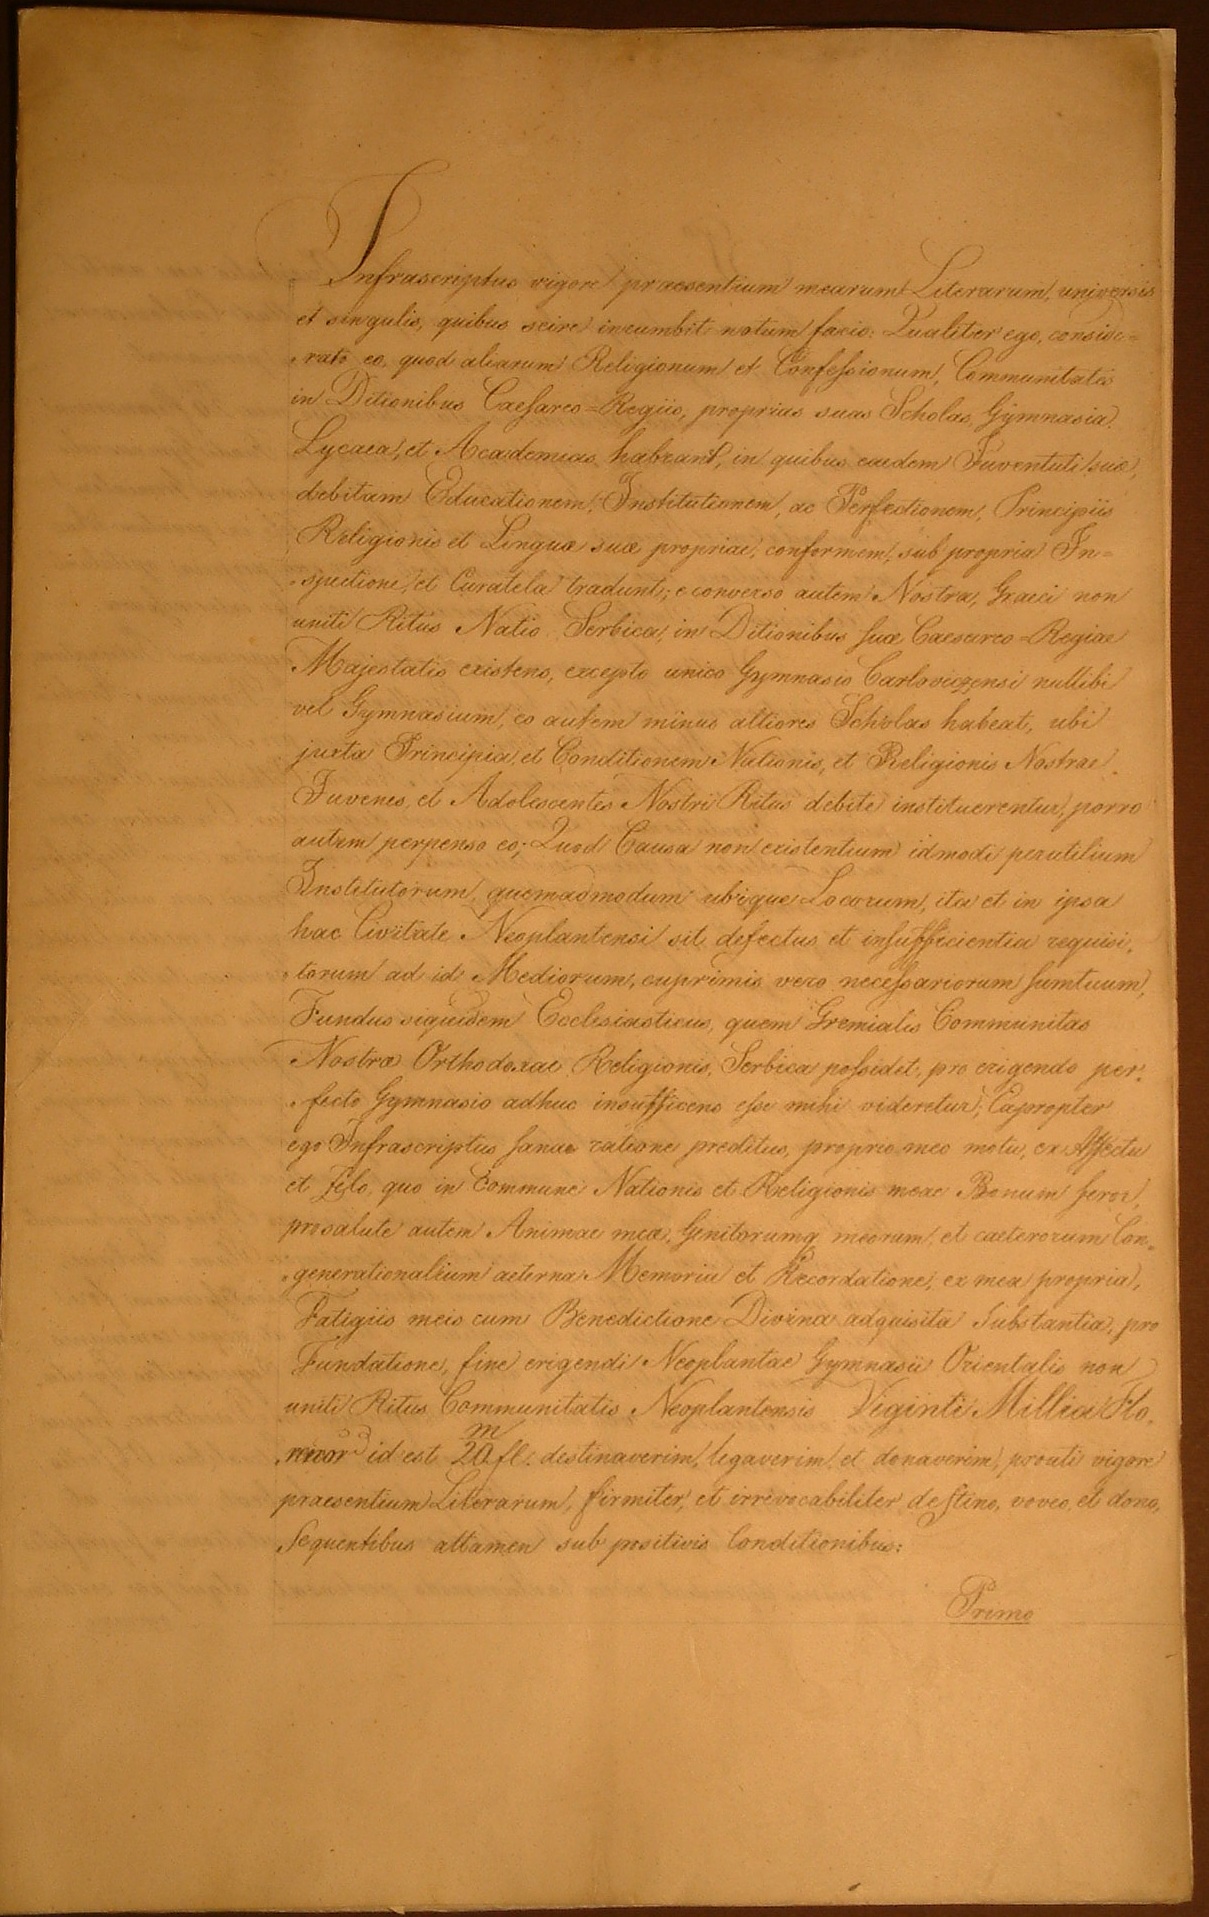 Infrascriptus vigore praesentium mearum Literarum, universis
et singulis, quibus scire incumbit notum facio: Qualiter ego, conside=
rato eo, quod aliarum Religionum et Confessionum, Communitates
in Ditionibus Caesareo=Regiis, proprias suas Scholas, Gymnasia,
Lycaea, et Academias habeant, in quibus eaedem Juventuti suae,
debitam Educationem, Institutionem, ac Perfectionem, Principiis
Religionis et Linguae suae propriae, conformem, sub propria In=
spectione, et Curatela tradunt; e converso autem Nostra, Graeci non
uniti Ritus Natio Serbica, in Ditionibus suae Caesareo=Regiae
Majestatis existens, excepto unico Gymnasio Carloviczensi nullibi
vel Gymnasium, eo autem minus altiores Scholas habeat, ubi
juxta Principia, et Conditionem Nationis, et Religionis Nostrae
Juvenes, et Adolescentes Nostri Ritus debite instituerentur, porro
autem perpenso eo; Quod Causa non existentium idmodi perutilium
Institutorum, quemadmodum ubique Locorum, ita et in ipsa
hac Civitate Neoplantensi sit defectus et insufficientia requisi,
torum ad id Mediorum, cuprimis vero necessariorum sumtuum,
Fundus siquidem Ecclesiasticus, quem Gremialis Communitas
Nostrae Orthodoxae Religionis, Serbica possidet, pro erigendo per,
fecto Gymnasio adhuc insufficens esse mihi videretur; Eapropter
ego Infrascriptus sanae ratione preditus, proprio meo motu, ex Affectu
et Zelo, quo in Commune Nationis et Religionis meae Bonum feror,
pro salute autem Animae meae, Genitorumq meorum, et caeterorum Con,
generationalium aeterna Memoria et Recordatione, ex mea propria,
Fatigiis meis cum Benedictione Divina adquisita Substantia, pro
Fundatione, fine erigendi Neoplantae Gymnasii Orientalis non
uniti Ritus Communitatis Neoplantensis Viginti Millia Flo,
renor id est 20 m fl. destinaverim, legaverim, et donaverim, prouti vigore
praesentium Literarum, firmiter, et irrevocabiliter destino, voveo, et dono,
Sequentibus attamen sub positivis Conditionibus:
Primo